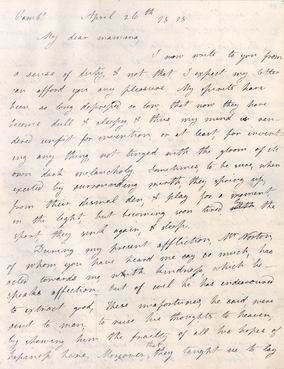 Camb? April 26th 1818
My dear mamma,
I now write to you from
a sense of duty, & not that I expect my letter
can afford you any pleasure. My spirits have
been so long depressed so long that now they have
become dull & sleepy & thus my mind is ren-
dered unfit for invention or at least for invent
ing any thing not tinged with the gloom of its
own dark melancholy. Sometimes to be sure, when
excited by surrounding mirth they spring up
from their dismal den, & play for a moment
in the light, but becoming soon tired the
sport they sink again, & sleep.
During my present affliction, Mr. Norton,
of whom you have heard me say so much, has
acted towards me with kindness, which be-
speaks affection. but of evil he has endeavoured
to extract good; These misfortunes, he said, were
sent to man, to raise his thoughts to heaven,
by shewing him the frailty of all his hopes of
happiness here. Moreover, that they taught us to lay